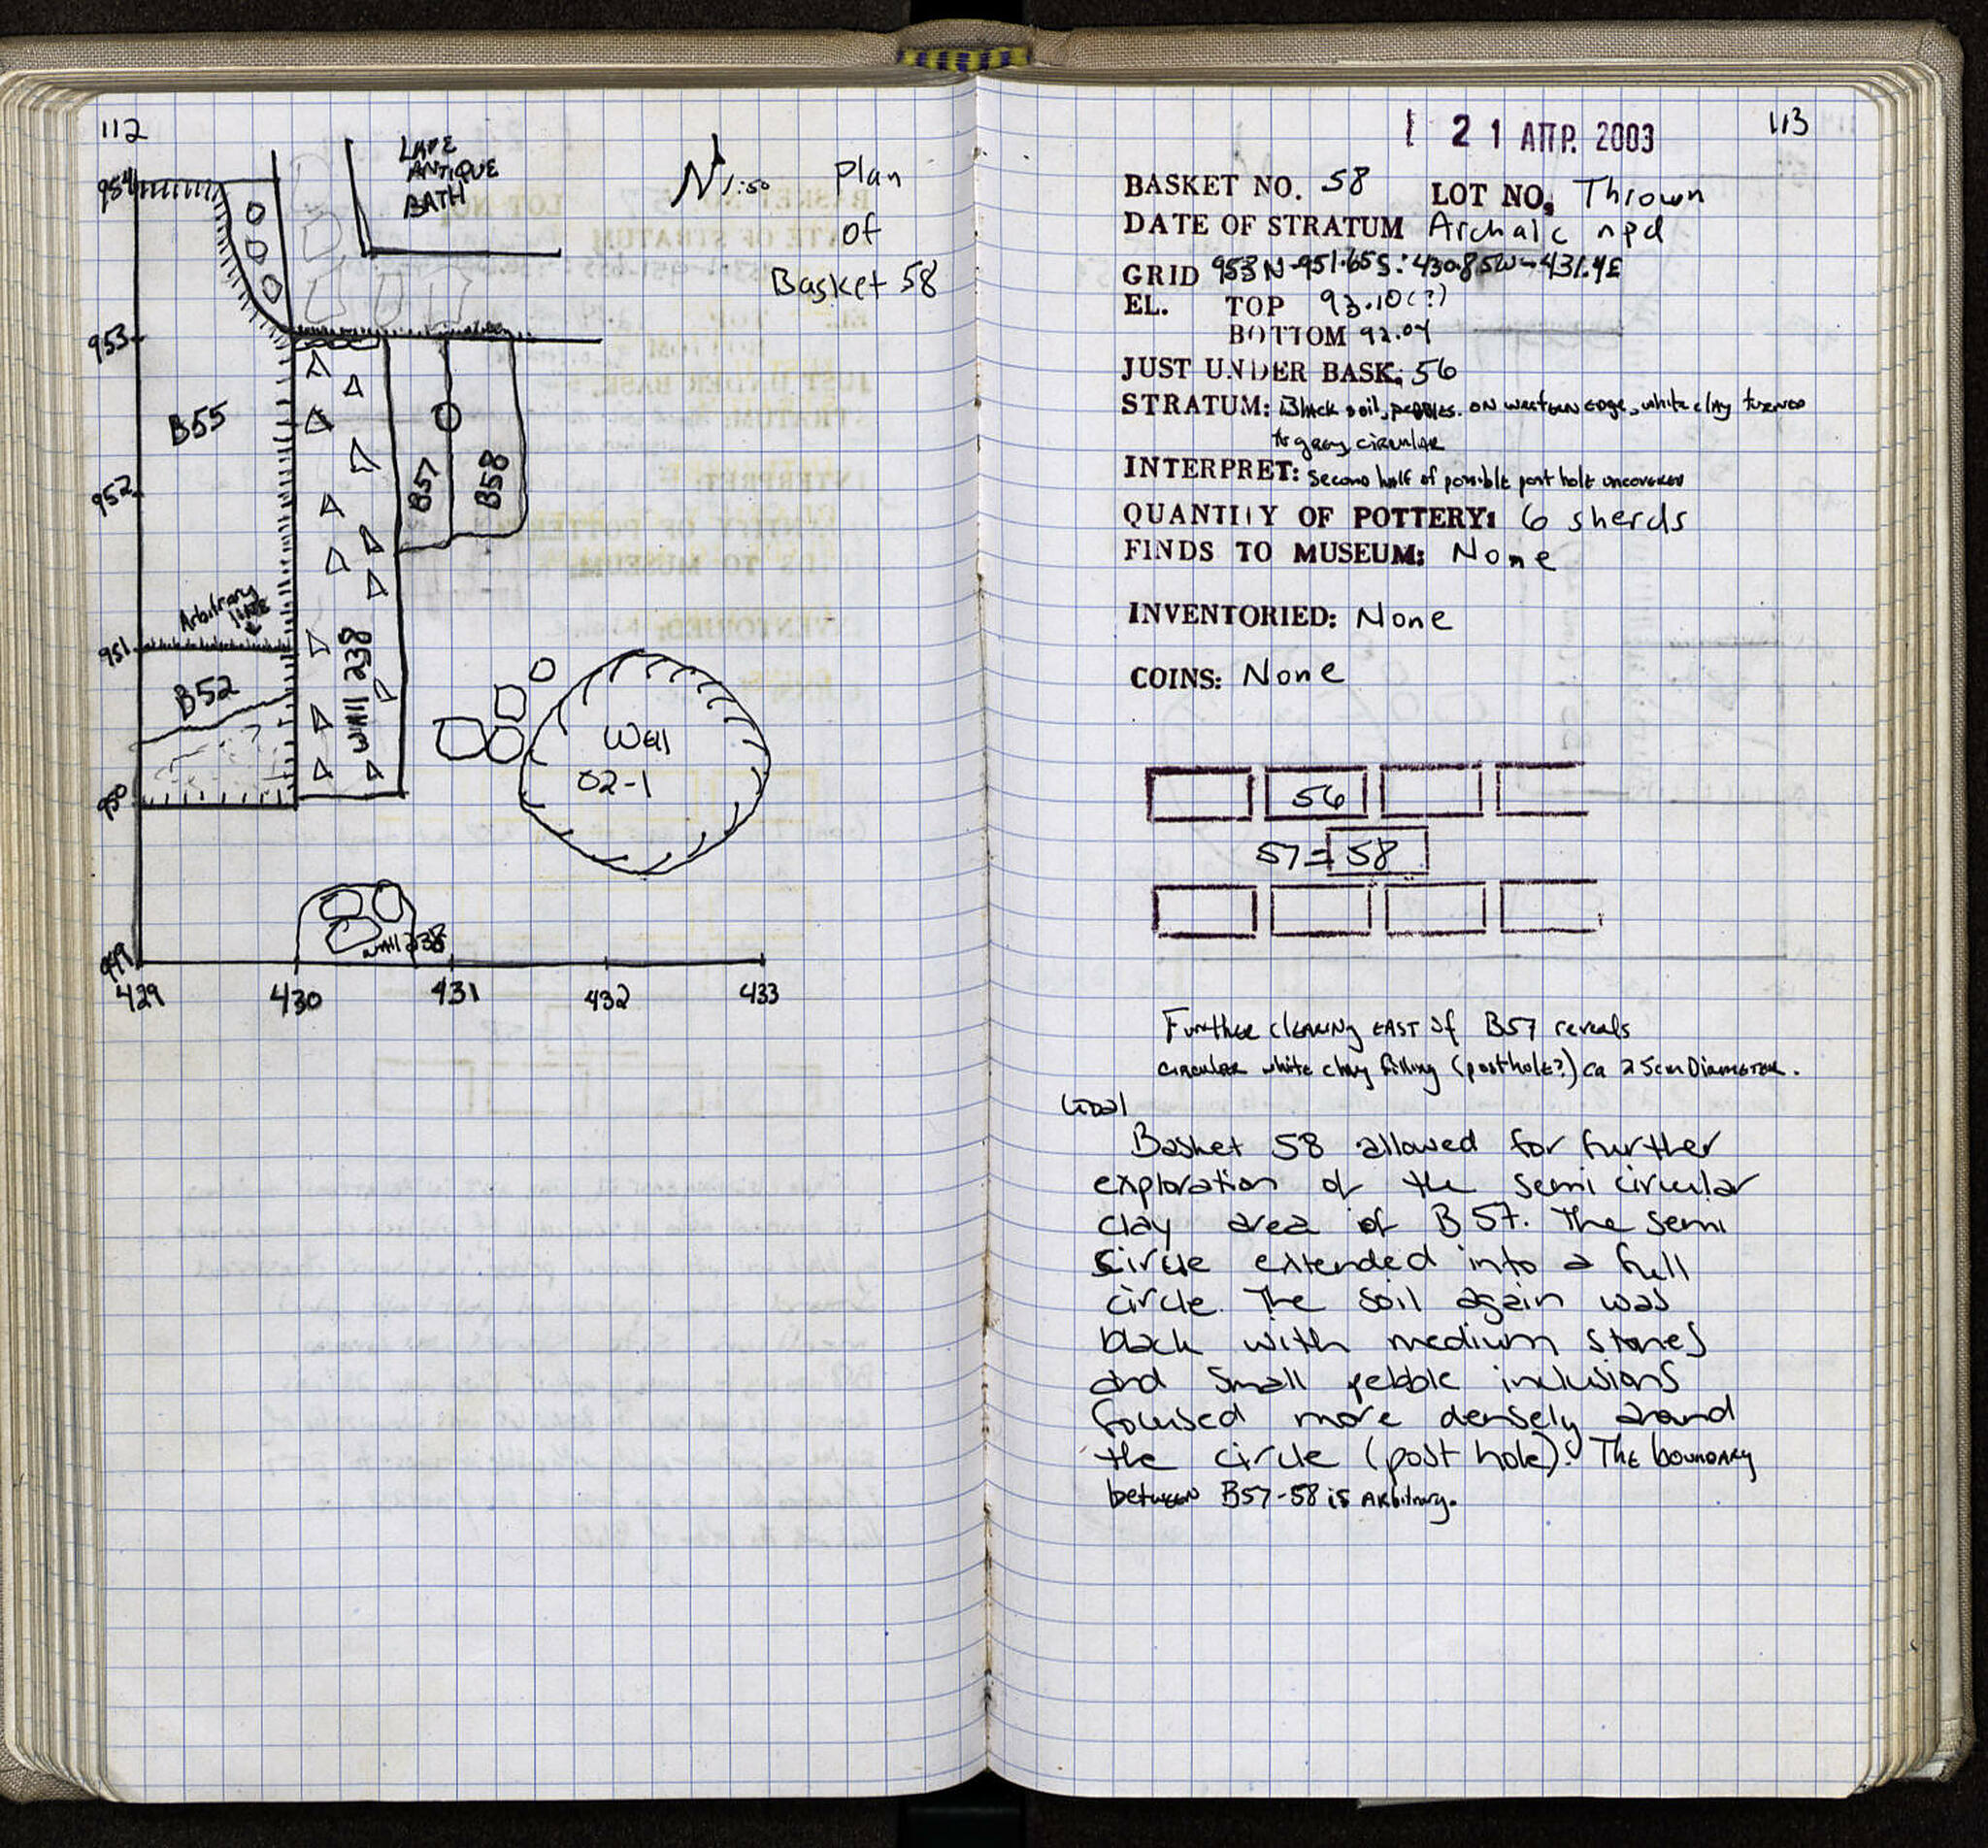 112
LATE
ANTIQUE
BATH
N 1:50
Plan
of
Basket 58
954
953
B55
B57
B58
952
Arbitrary
LINE
951
Wall 238
B52
Well
02-1
950
Wall 238
949
429 430 431 432 433
21 ΑΠΡ. 2003
113
BASKET NO. 58 LOT NO. Thrown
DATE OF STRATUM Archaic npd
GRID 953N-951.65S: 430.85W-431.4E
EL. TOP 93.10(?)
BOTTOM 92.04
JUST UNDER BASK. 56
STRATUM: Black soil, pebbles. ON WESTERN Edge, white clay turned
to gray, circular
INTERPRET: Second half of possible post hole uncovered
QUANTITY OF POTTERY: 6 sherds
FINDS TO MUSEUM: None
INVENTORIED: None
COINS: None
56
57=58
Further cleaning EAST of B57 reveals
circular white clay filling (posthole?) ca 25cm Diameter.
Goal
Basket 58 allowed for further
exploration of the semi circular
clay area of B57. The semi
circle extended into a full
circle. The soil again was
black with medium stones
and small pebble inclusions
focused more densely around
the circle (post hole). The boundary
between B57-58 is Arbitrary.